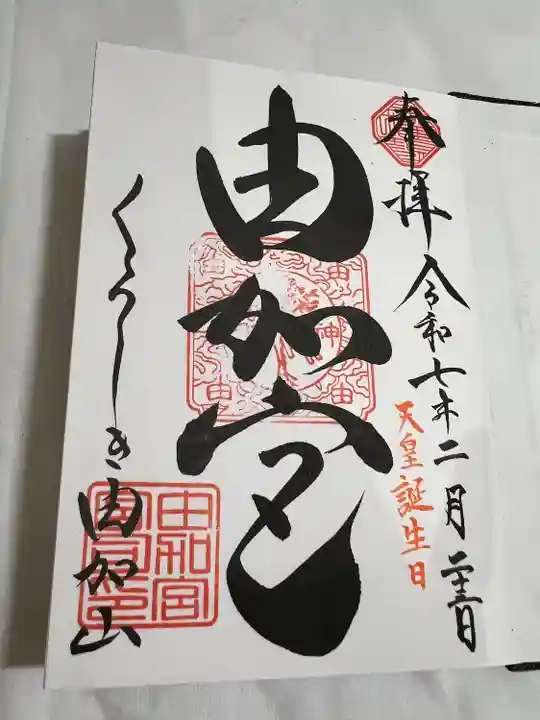 奉拝
令和七年二月二十三日
天皇誕生日
由加宮
くらしき由加山
由加宮